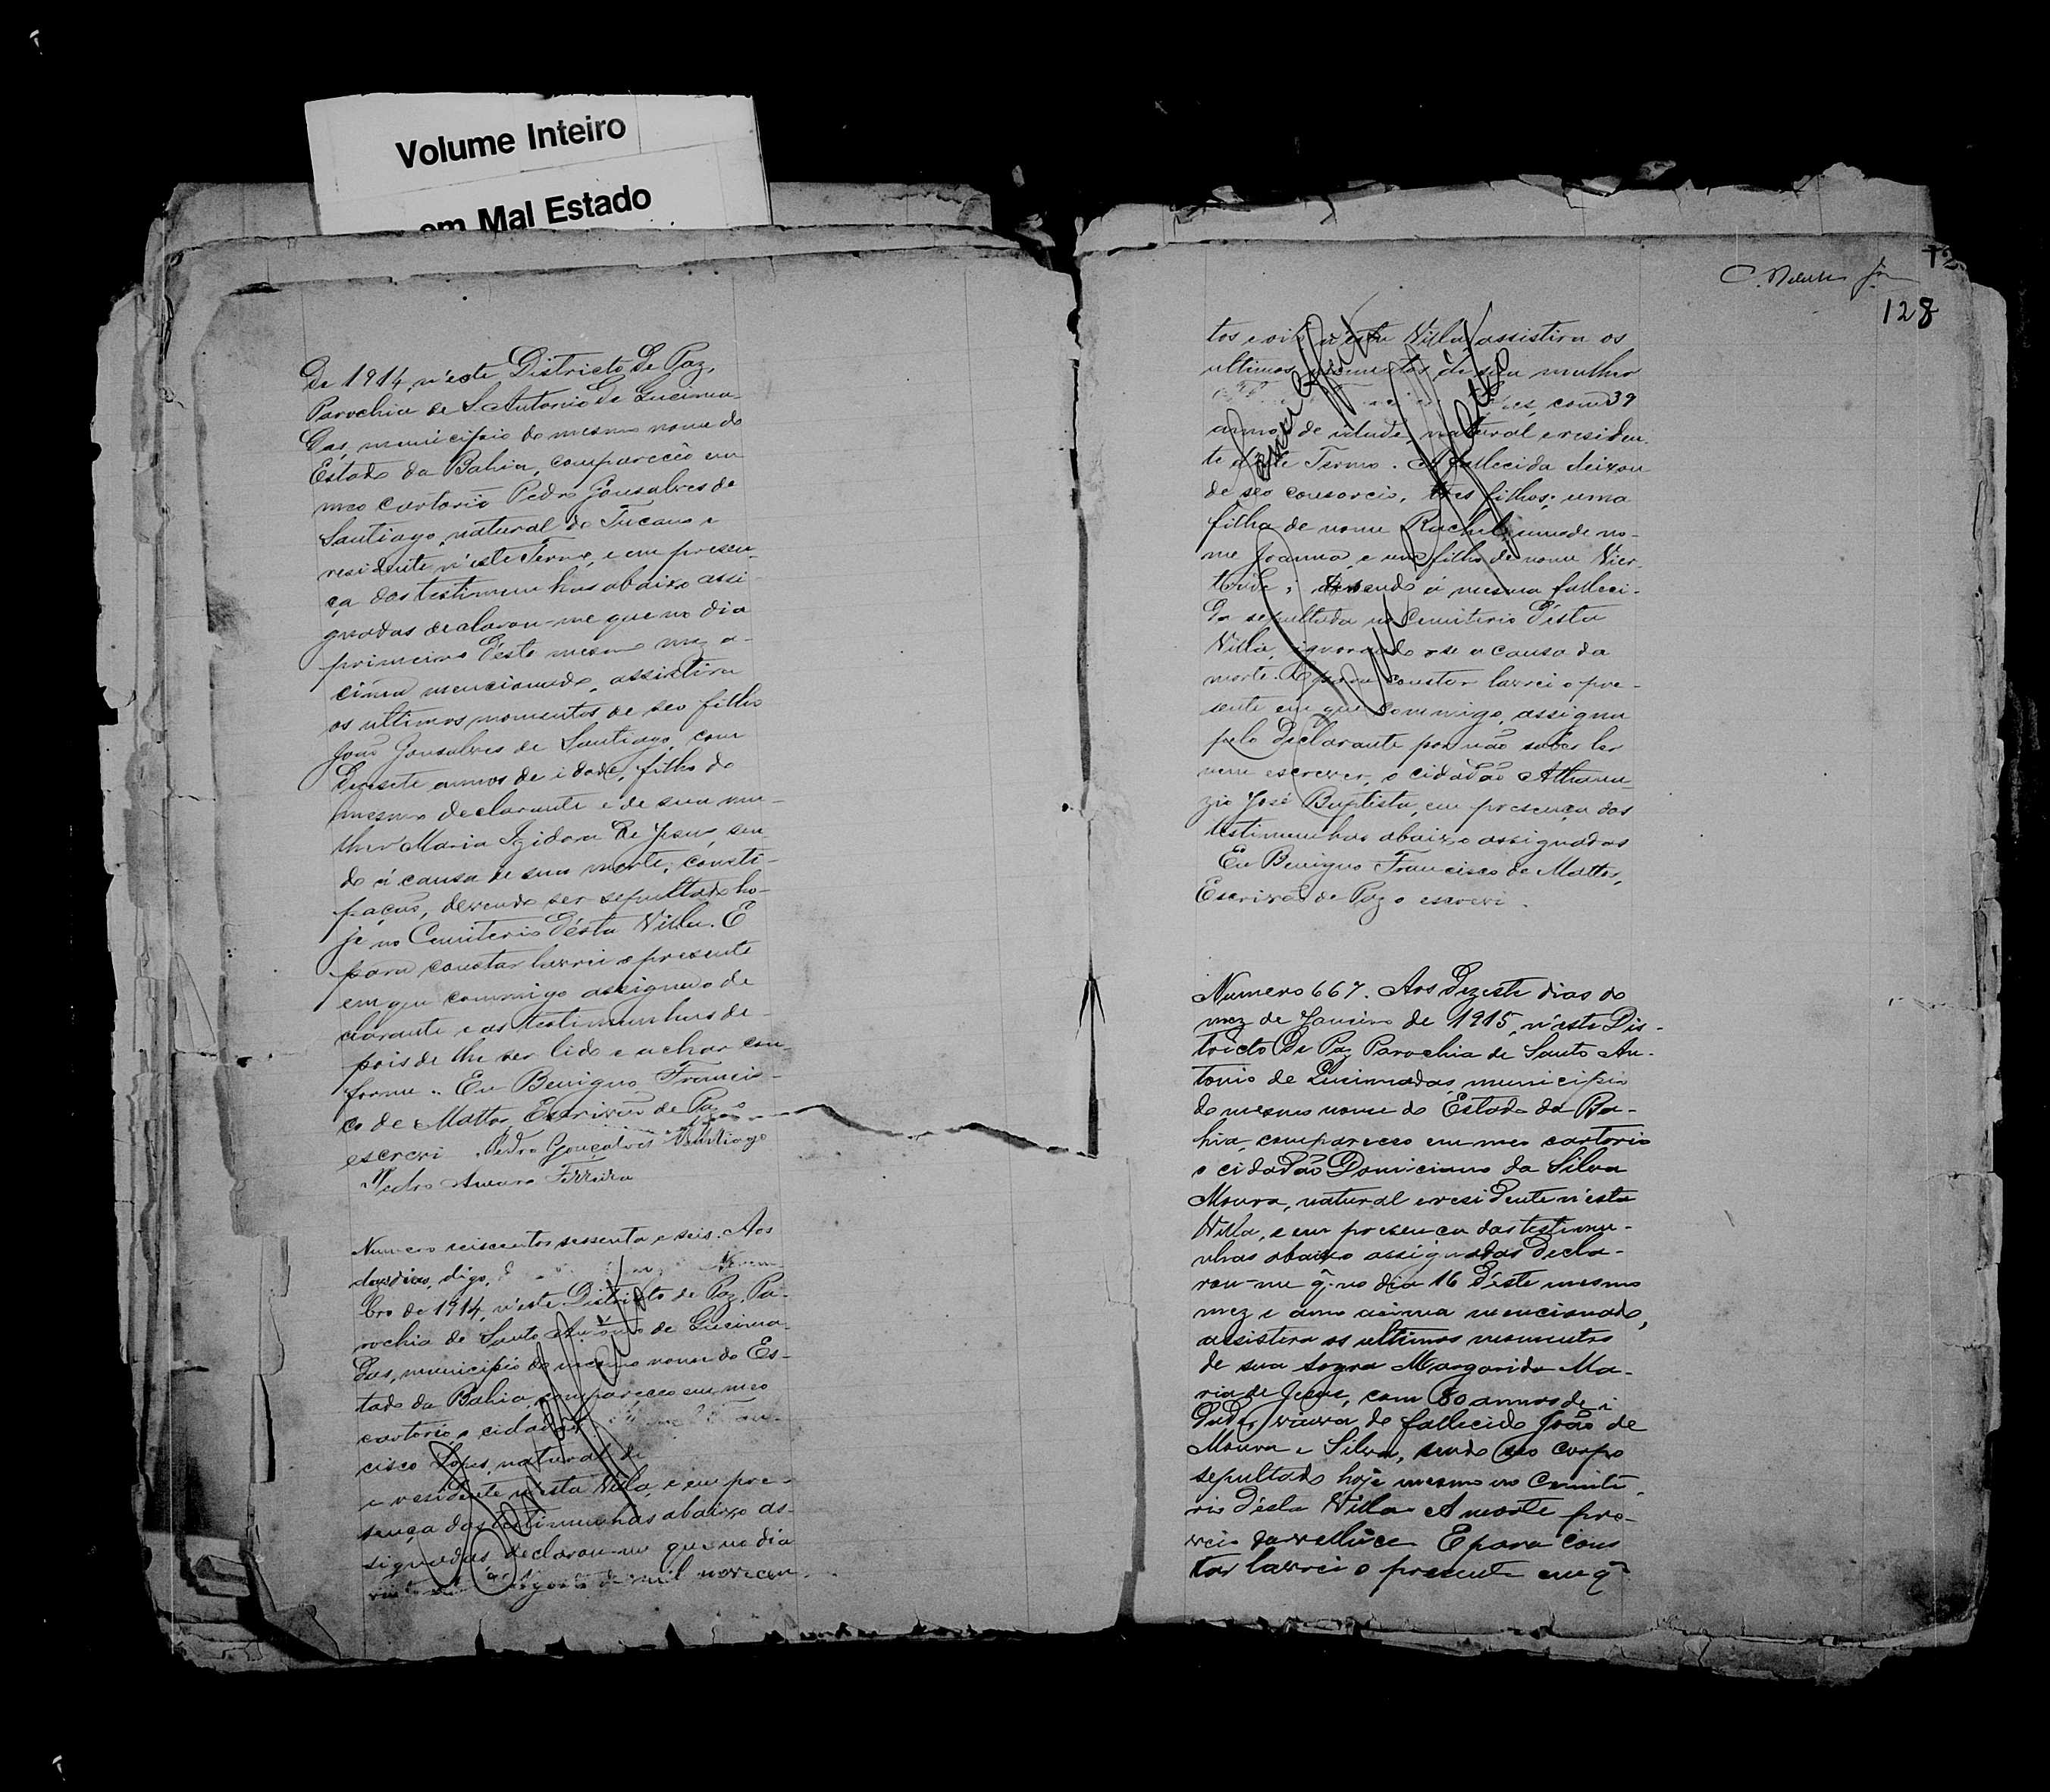 Volume Inteiro
em Mal Estado
De 1914, n'este Districto de Paz,
Parochia de S. Antonio de Queima-
das, municipio do mesmo nome do
Estado da Bahia, compareceo em
meo cartorio Pedro Gonsalves de
Santiago, natural do Tucano e
residente n'este Termo, e em presen-
ça das testimunhas abaixo assi-
gnadas declarou-me que no dia
primeiro d'este mesmo mez a-
cima mencionado, assistira
os ultimos momentos de seo filho
João Gonsalves de Santiago, com
dezesete annos de idade, filho do
mesmo declarante e de sua mu-
lher Maria Izidora de Jesus, sen-
do a causa de sua morte, consti-
pação, devendo ser sepultado ho-
je no Cemiterio d'ésta Villa. E
para constar lavrei o presente
em que commigo assignão o de-
clarante e as testimunhas de-
pois de lhe ser lido e achar con-
forme. Eu Benigno Francis-
co de Mattos, Escrivão de Paz o
escrevi Pedro Gonçalves Santiago
Pedro Amaro Ferreira
Numero seiscentos sessenta e seis. Aos
dias, digo,
bro de 1914, n'este Districto de Paz, Pa-
rochia de Santo Antonio de Queima-
das, municipio do mesmo nome do Es-
tado da Bahia, compareceo em meo
cartorio o cidadão
cisco Lopes, natural de
e residente n'ésta Villa, e em pre-
sença das testimunhas abaixo as-
signadas, declarou-me que no dia
de mil novecen-
C. Jor
128
tos e oito n'ésta Villa assistira os
ultimos momentos de sua mulher
com 39
annos de idade, natural e residen-
te d'este Termo. A fallecida deixou
de seo consorcio, tres filhos; uma
filha de nome Rachel, uma de no-
me Joanna, e um filho de nome
sendo a mesma falleci-
da sepultada no Cemiterio d'ésta
Villa, ignorando-se a causa da
morte. E para constar lavrei o pre-
sente em que commigo, assigna
pelo declarante por não saber ler
nem escrever, o cidadão Athana-
zio José Baptista, em presença das
testimunhas abaixo assignadas
Eu Benigno Francisco de Mattos,
Escrivão de Paz o escrevi.
Numero 667. Aos dezesete dias do
mez de Janeiro de 1915, n'este Dis-
tricto de Paz Parochia de Santo An-
tonio de Queimadas, municipio
do mesmo nome do Estado da Ba-
hia, compareceo em meo cartorio
o cidadão Domiciano da Silva
Moura, natural e residente n'ésta
Villa, e em presença das testimu-
nhas abaixo assignadas decla-
rou-me q. no dia 16 d'este mesmo
mez e anno acima mencionado,
assistira os ultimos momentos
de sua sogra Margarida Ma-
ria de Jesus, com 80 annos de i-
dade, viuva do fallecido João de
Moura e Silva, sendo seo corpo
sepultado hoje mesmo no Cemite-
rio d'ésta Villa A morte pro-
veio da velhice E para cons-
tar lavrei o presente em q